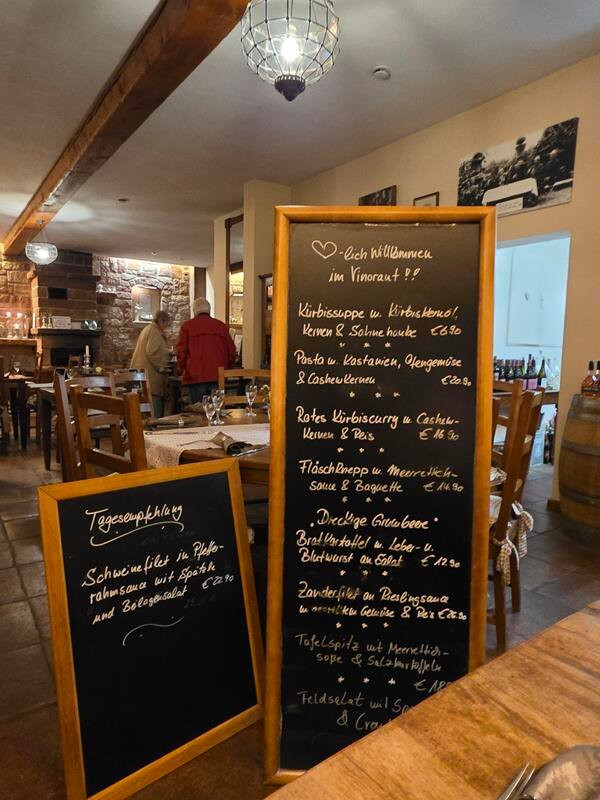 Tagesempfehlung
Schweinefilet in Pfeffer-
rahmsauce mit Spätzle
und Beilagensalat € 22.90
♡-lich Willkommen
im Vinoraut !!
Kürbissuppe u. Kürbiskernöl,
Kernen & Sahnehaube € 6.90
* * *
Pasta u. Kastanien, Ofengemüse
& Cashewkernen € 20.90
* * *
Rotes Kürbiscurry u. Cashew-
kernen & Reis € 16.90
* * *
Fläschknepp u. Meerrettich-
sauce & Baguette € 14.90
* * *
"Dreckige Grumbeere"
Bratkartoffel u. Leber- u.
Blutwurst an Salat € 12.90
* * *
Zanderfilet an Rieslingsauce
u. Gemüse & Reis € 26.90
* * *
Tafelspitz mit Meerettich-
soße & Salzkartoffeln
* * * € 18
Feldsalat mit
&